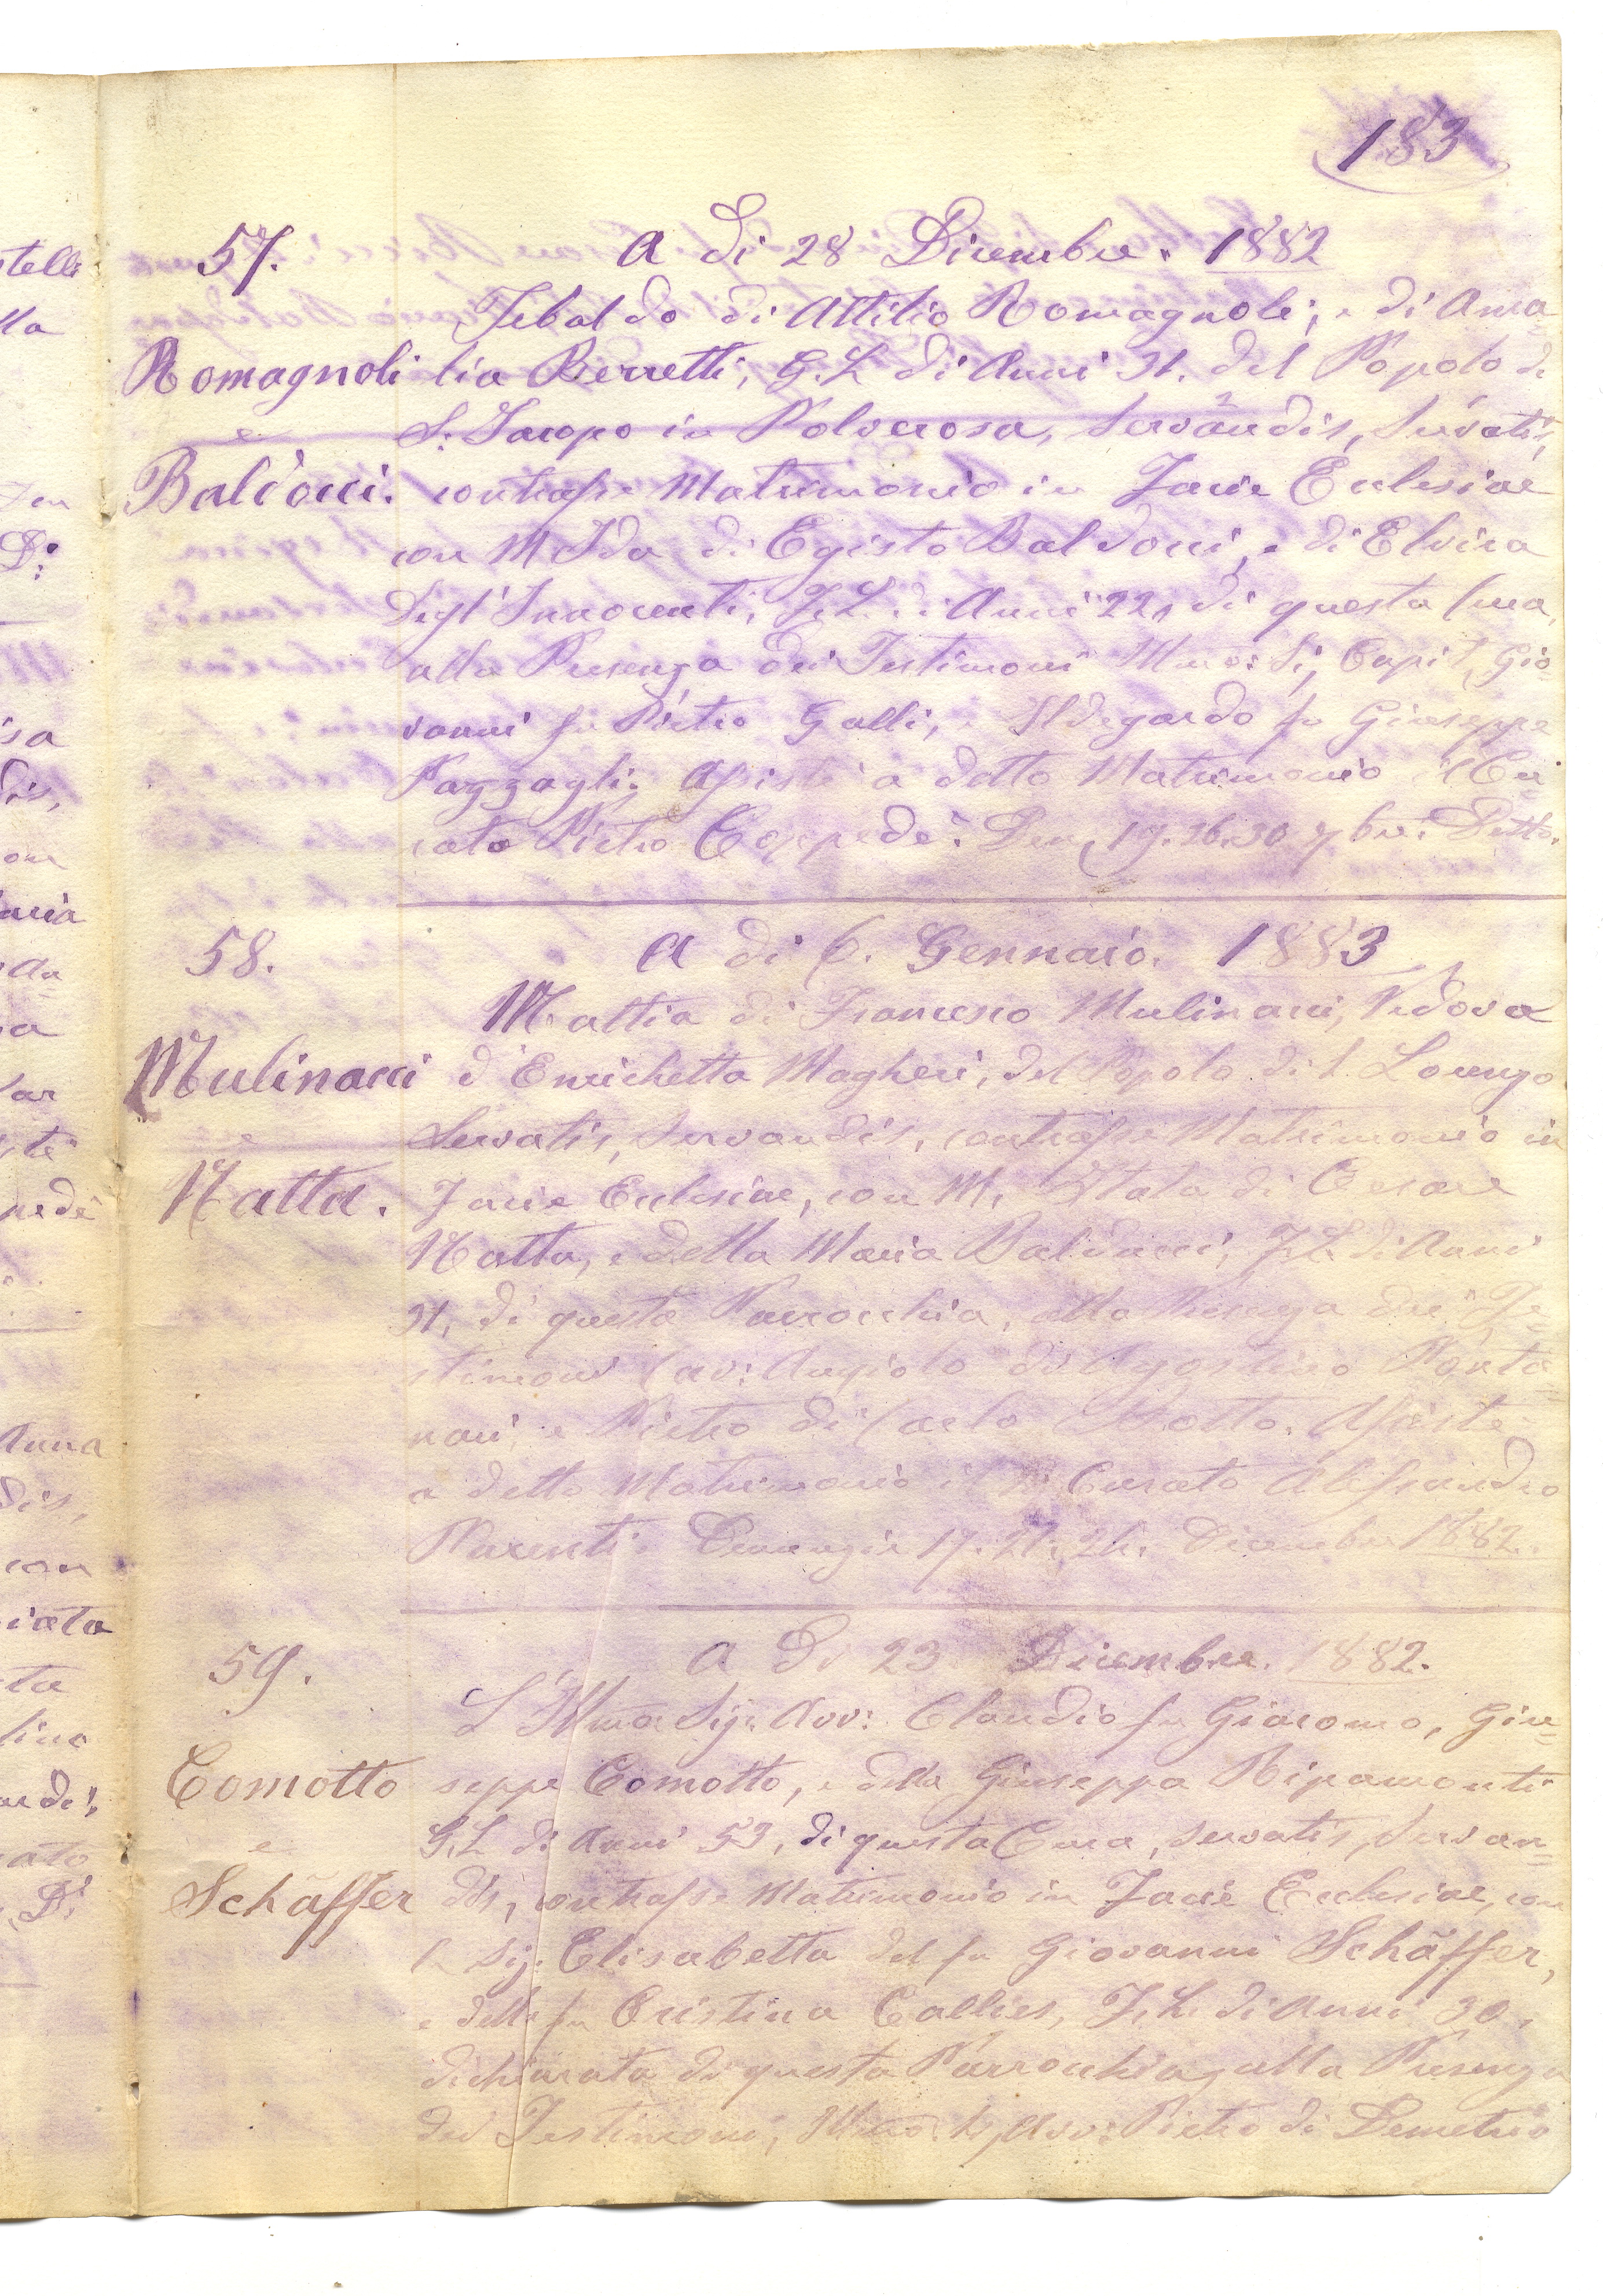 183
57.
A di 28 Dicembre. 1882
Tebaldo di Attilio Romagnoli, e di Ama=
Romagnoli
lia Berretti, G.L. di Anni 31. del Popolo di
e
S: Jacopo in Polverosa, Servandis, Servatis,
Baldocci.
contrasse Matrimonio in Facie Eclesiae
con M Ida di Egisto Baldocci, e di Elvira
Degl'Innocenti, F.L. di Anni 22, di questa Cura,
alla Presenza dei Testimoni Illmo: Sig Capit. Gio=
vanni fu Pietro Galli, e Ildegardo fu Giuseppe
Pazzagli: Assistè a detto Matrimonio il Cu=
rato Pietro Coppedè. Den, 17. 26. 30 9bre: Detto.
58.
A di 6. Gennaio. 1883
Mattia di Francesco Mulinacci, Vedovo
Mulinacci
d'Enrichetta Magheri, del Popolo di S. Lorenzo
e
Servatis, Servandis, contrasse Matrimonio in
Natta.
Facie Eclesiae, con M. Itala di Cesare
Natta, e della Maria Balducci, F.L. di Anni
31, di questa Parrocchia, alla Presenza dei Te=
stimoni Cav: Angiolo di Agostino Ponta=
nari e Pietro di Carlo Motto. Assistè
a detto Matrimonio il Curato Alessandro
Parenti. Denunzie 17. 21. 24. Dicembre 1882.
59.
A Di 23 Dicembre. 1882.
L'Illmo Sig. Avv: Claudio fu Giacomo, Giu=
Comotto
seppe Comotto, e della Giuseppa Ripamonti
G.L di Anni 53, di questa Cura, servatis, Servan=
e
Schäffer
dis, contrasse Matrimonio in Facie Ecclesiae, con
la Sig. Elisabetta del fu Giovanni Schäffer,
e della fu Cristina Callies, F.L. di Anni 30,
dichiarata di questa Parrocchia, alla Presenza
dei Testimoni, Illmo. Sig Avv: Pietro di Demetrio